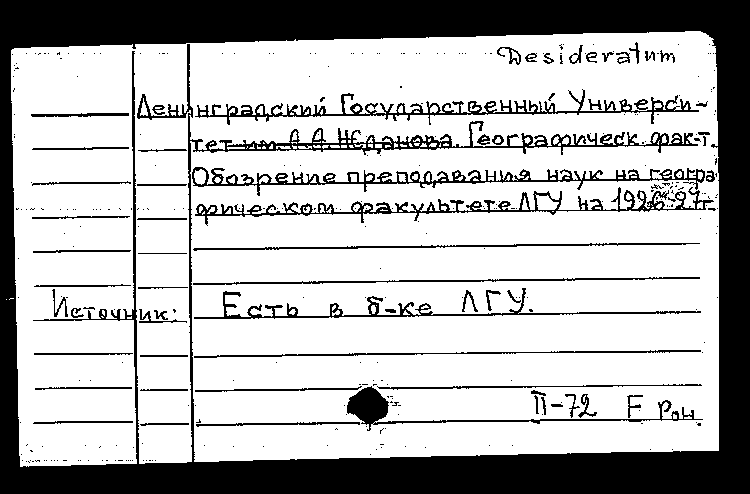 Desideratum
Ленинградский Государственный Универси-
тет им. А. А. Жданова. Географическ. фак-т.
Обозрение преподавания наук на геогра
фическом факультете ЛГУ на 1926-27г.
Источник: Есть в б-ке ЛГУ.
II-72 F